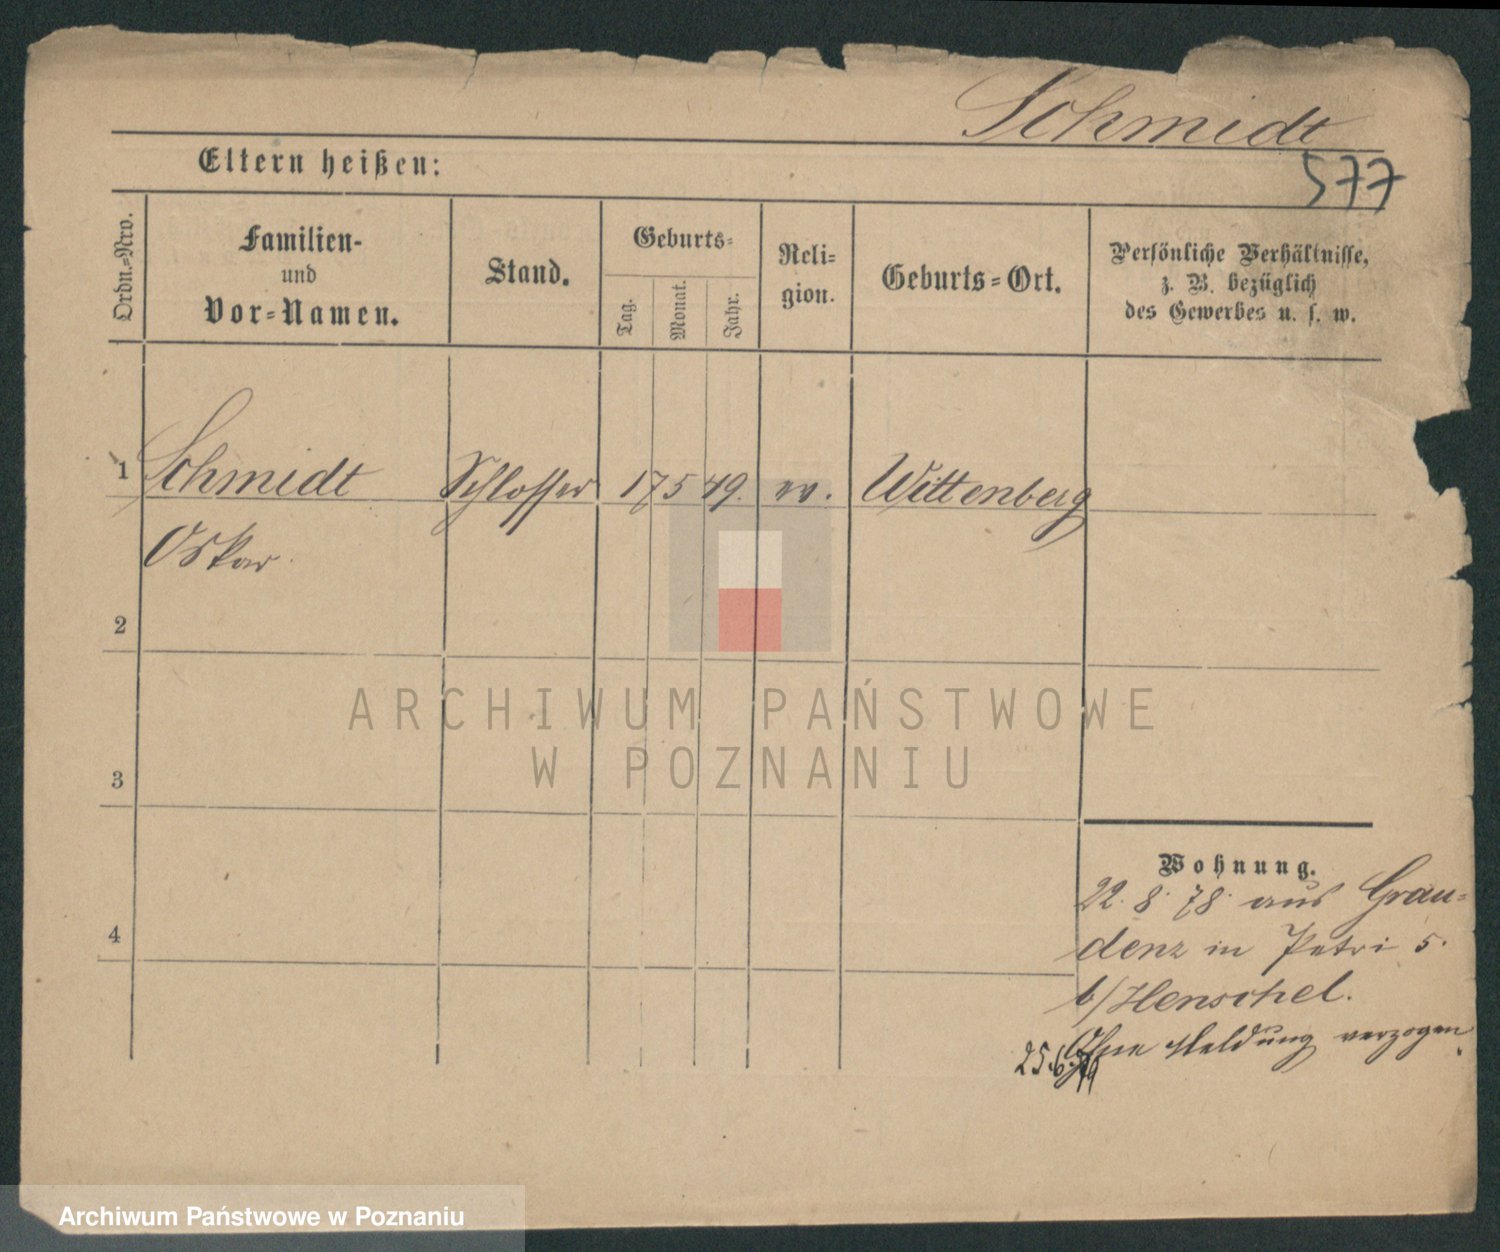 Schmidt
577
Eltern heißen:
Ordn.-Nro.
Familien-
und
Vor-Namen.
Stand.
Geburts-
Tag.
Monat.
Jahr.
Reli-
gion.
Geburts-Ort.
Persönliche Verhältnisse,
z. B. bezüglich
des Gewerbes u. s. w.
1 Schmidt Schlosser 17 5 49. ev. Wittenberg
Oskar
2
3
4
Wohnung.
22. 8. 78. aus Grau-
denz in Petri 5.
b/Henschel.
Ohne Meldung verzogen
25.6.79
ARCHIWUM PAŃSTWOWE
W POZNANIU
Archiwum Państwowe w Poznaniu